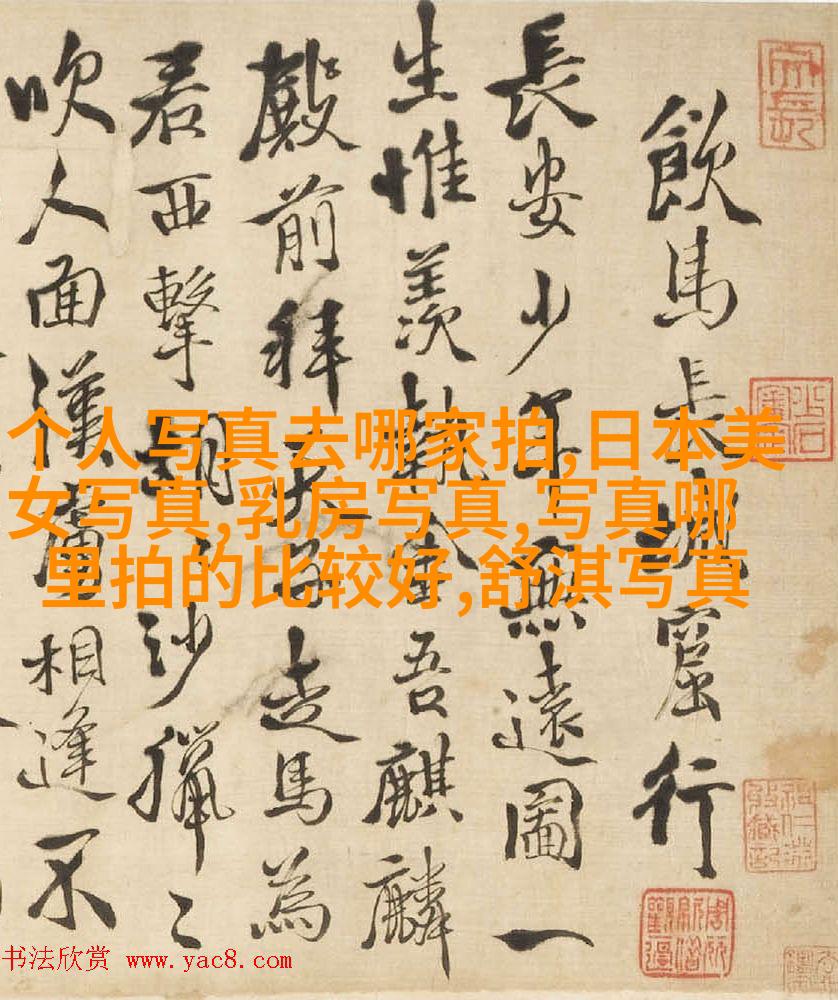 飲馬長城窟行
長安少年無遠圖一
生惟羨執金吾麒麟
殿前拜天子走馬為
君西擊胡〻沙獵〻
吹人面漢虜相逢不
个人写真去哪家拍,日本美
女写真,乳房写真,写真哪
里拍的比较好,舒淇写真
书法欣赏 www.yac8.com